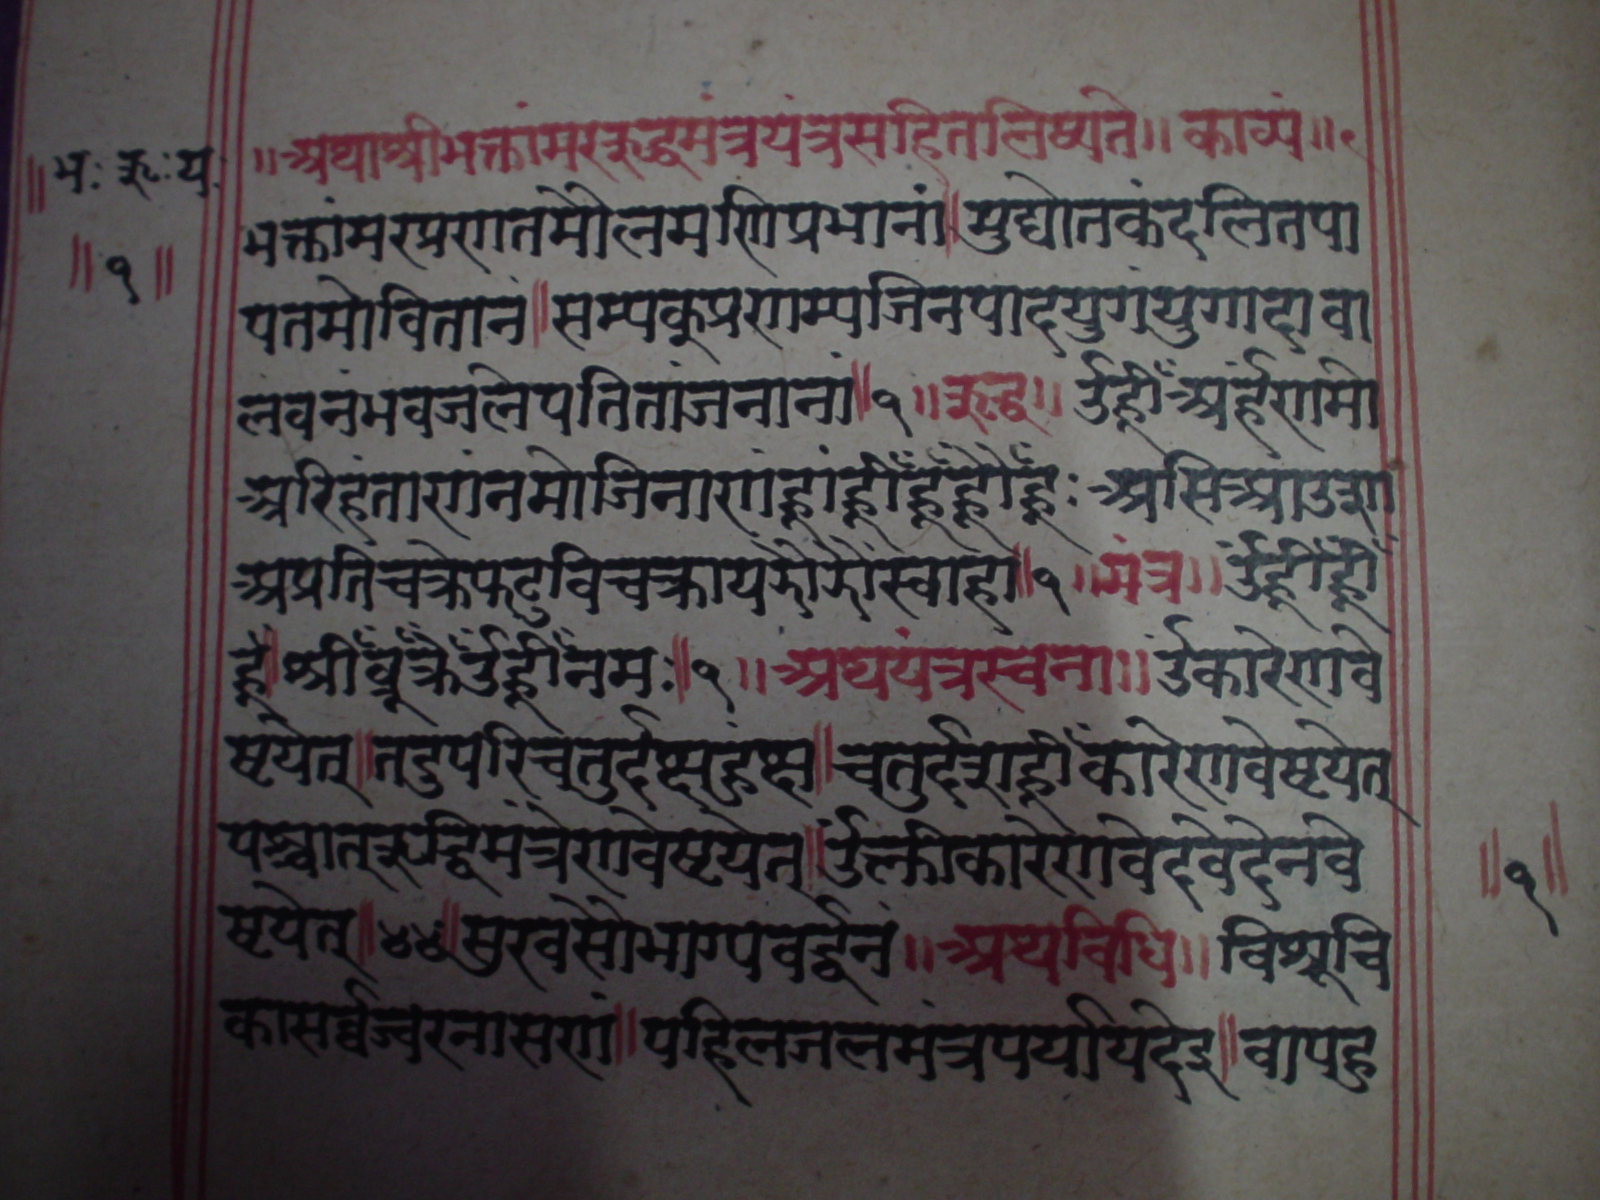 ॥अथाश्रीभक्तांमरऋद्धमंत्रयंत्रसहितलिष्यते॥ काव्यं॥
भः ऋः यः
भक्तांमरप्रणतमौलमणिप्रभानां॥मुद्योतकंदलितपा
॥१॥
पतमोवितानं॥सम्यक्प्रणम्यजिनपादयुगंयुगादावा
लवनंभवजलेपतितांजनानां॥१॥ऋद्ध॥ र्उह्रीँअर्हंणमो
अरिहंताणंनमोजिनाणंह्रांह्रीँह्रूँह्रौँह्रः असिआउसा
अप्रतिचक्रेफट्विचक्रायझौंझौंस्वाहा॥१॥मंत्र॥
श्रीँ नमः॥१॥अथयंत्ररचना॥ र्उकारेणवे
ष्टयेत्॥तदुपरिचतुर्द ॥चतुर्दशह्रीँकारेणवेष्टयेत्
पश्चात्ऋद्धिमंत्रेणवेष्टयेत्॥
ष्टयेत्॥४४॥सुखसौभाग्यवर्द्धनं॥अथविधि॥ विश्रूचि
॥१॥
कासर्व्वज्वरनासणं॥पहिलजलमंत्रपर्यायदेइ॥वापहु